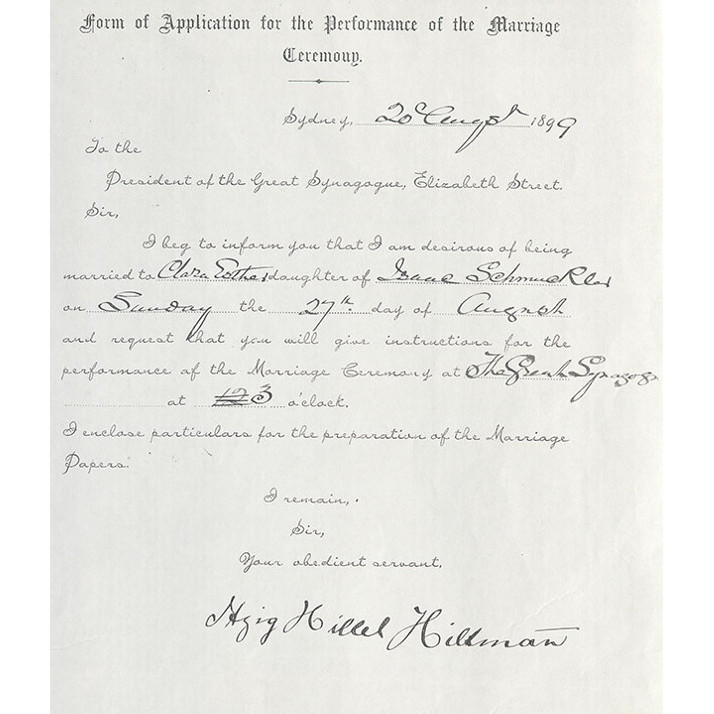 Form of Application for the Performance of the Marriage
Ceremony.
Sydney, 20 Augst 1899
To the
President of the Great Synagogue, Elizabeth Street.
Sir,
I beg to inform you that I am desirous of being
married to Clara Esther daughter of Isaac Schmuckler
on Sunday the 27th day of August
and request that you will give instructions for the
performance of the Marriage Ceremony at The Great Synagog
at 12 3 o'clock.
I enclose particulars for the preparation of the Marriage
Papers.
I remain,
Sir,
Your obedient servant,
Hillel Hillman